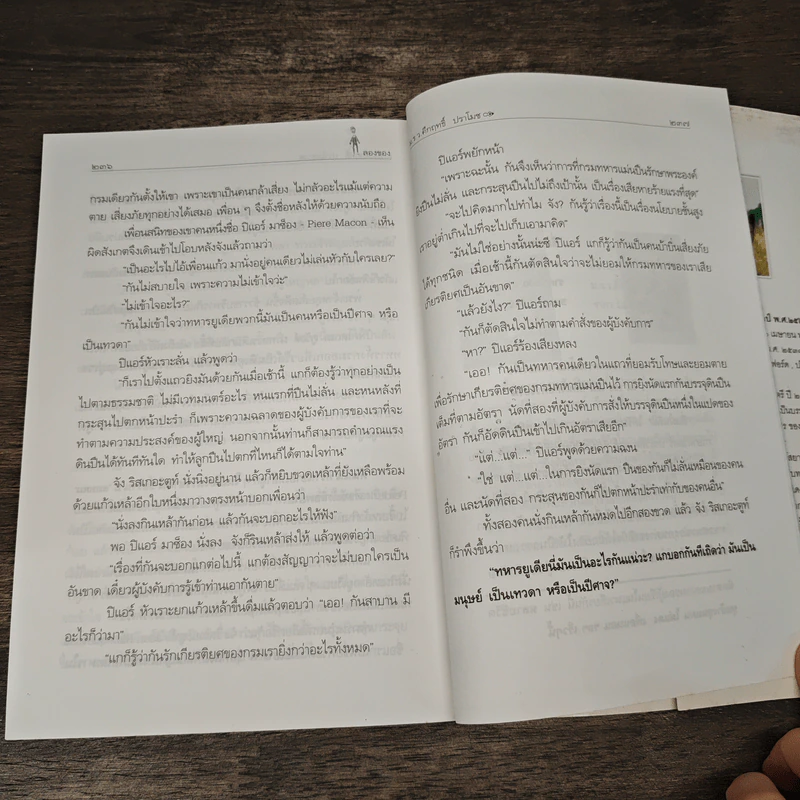 ๒๓๖
คองของ
กรมเดียวกันตั้งให้เขา เพราะเขาเป็นคนกล้าเสี่ยง ไม่กลัวอะไรแม้แต่ความ
ตาย เสี่ยงภัยทุกอย่างได้เสมอ เพื่อน ๆ จึงตั้งชื่อหลังให้ด้วยความนับถือ
เพื่อนสนิทของเขาคนหนึ่งชื่อ ปิแอร์ มาซ็อง - Piere Macon - เห็น
ผิดสังเกตจึงเดินเข้าไปโอบหลังจังแล้วถามว่า
“เป็นอะไรไปไอ้เพื่อนแก้ว มานั่งอยู่คนเดียวไม่เล่นหัวกับใครเลย?”
“กันไม่สบายใจ เพราะความไม่เข้าใจว่ะ”
“ไม่เข้าใจอะไร?”
“กันไม่เข้าใจว่าทหารยูเดียพวกนี้มันเป็นคนหรือเป็นปีศาจ หรือ
เป็นเทวดา”
ปิแอร์หัวเราะลั่น แล้วพูดว่า
“ก็เราไปตั้งแถวยิงมันด้วยกันเมื่อเช้านี้ แกก็ต้องรู้ว่าทุกอย่างเป็น
ไปตามธรรมชาติ ไม่มีเวทมนตร์อะไร หนแรกที่ปืนไม่ลั่น และหนหลังที่
กระสุนไปตกหน้าปะรำ ก็เพราะความฉลาดของผู้บังคับการของเราที่จะ
ทำตามความประสงค์ของผู้ใหญ่ นอกจากนั้นท่านก็สามารถคำนวณแรง
ดินปืนได้ทันทีทันใด ทำให้ลูกปืนไปตกที่ไหนก็ได้ตามใจท่าน”
จัง ริสเกอะตูท์ นั่งนิ่งอยู่นาน แล้วก็หยิบขวดเหล้าที่ยังเหลือพร้อม
ด้วยแก้วเหล้าอีกใบหนึ่งมาวางตรงหน้าบอกเพื่อนว่า
“นั่งลงกินเหล้ากันก่อน แล้วกันจะบอกอะไรให้ฟัง”
พอ ปิแอร์ มาซ็อง นั่งลง จังก็รินเหล้าส่งให้ แล้วพูดต่อว่า
“เรื่องที่กันจะบอกแกต่อไปนี้ แกต้องสัญญาว่าจะไม่บอกใครเป็น
อันขาด เดี๋ยวผู้บังคับการรู้เข้าท่านเอากันตาย”
ปิแอร์ หัวเราะยกแก้วเหล้าขึ้นดื่มแล้วตอบว่า “เออ! กันสาบาน มี
อะไรก็ว่ามา”
“แกก็รู้ว่ากันรักเกียรติยศของกรมเรายิ่งกว่าอะไรทั้งหมด”
ม.ร.ว.คึกฤทธิ์ ปราโมช
๒๓๗
ปิแอร์พยักหน้า
“เพราะฉะนั้น กันจึงเห็นว่าการที่กรมทหารแม่นปืนรักษาพระองค์
ยิงปืนไม่ลั่น และกระสุนปืนไปไม่ถึงเป้านั้น เป็นเรื่องเสียหายร้ายแรงที่สุด”
“จะไปคิดมากไปทำไม จัง? กันรู้ว่าเรื่องนี้เป็นเรื่องนโยบายชั้นสูง
เราอยู่ต่ำเกินไปที่จะไปเก็บเอามาคิด”
“มันไม่ใช่อย่างนั้นน่ะซี ปิแอร์ แกก็รู้ว่ากันเป็นคนบ้าบิ่นเสี่ยงภัย
ได้ทุกชนิด เมื่อเช้านี้กันตัดสินใจว่าจะไม่ยอมให้กรมทหารของเราเสีย
เกียรติยศเป็นอันขาด”
“แล้วยังไง?” ปิแอร์ถาม
“กันก็ตัดสินใจไม่ทำตามคำสั่งของผู้บังคับการ”
“หา?” ปิแอร์ร้องเสียงหลง
“เออ! กันเป็นทหารคนเดียวในแถวที่ยอมรับโทษและยอมตาย
เพื่อรักษาเกียรติยศของกรมทหารแม่นปืนไว้ การยิงนัดแรกกันบรรจุดินปืน
เต็มที่ตามอัตรา นัดที่สองที่ผู้บังคับการสั่งให้บรรจุดินปืนหนึ่งในแปดของ
อัตรา กันก็อัดดินปืนเข้าไปเกินอัตราเสียอีก”
“แต่...แต่...” ปิแอร์พูดด้วยความฉงน
“ใช่ แต่...แต่...ในการยิงนัดแรก ปืนของกันก็ไม่ลั่นเหมือนของคน
อื่น และนัดที่สอง กระสุนของกันก็ไปตกหน้าปะรำเท่ากับของคนอื่น”
ทั้งสองคนนั่งกินเหล้ากันหมดไปอีกสองขวด แล้ว จัง ริสเกอะตูท์
ก็รำพึงขึ้นว่า
“ทหารยูเดียนี่มันเป็นอะไรกันแน่วะ? แกบอกกันทีเถิดว่า มันเป็น
มนุษย์ เป็นเทวดา หรือเป็นปีศาจ?”